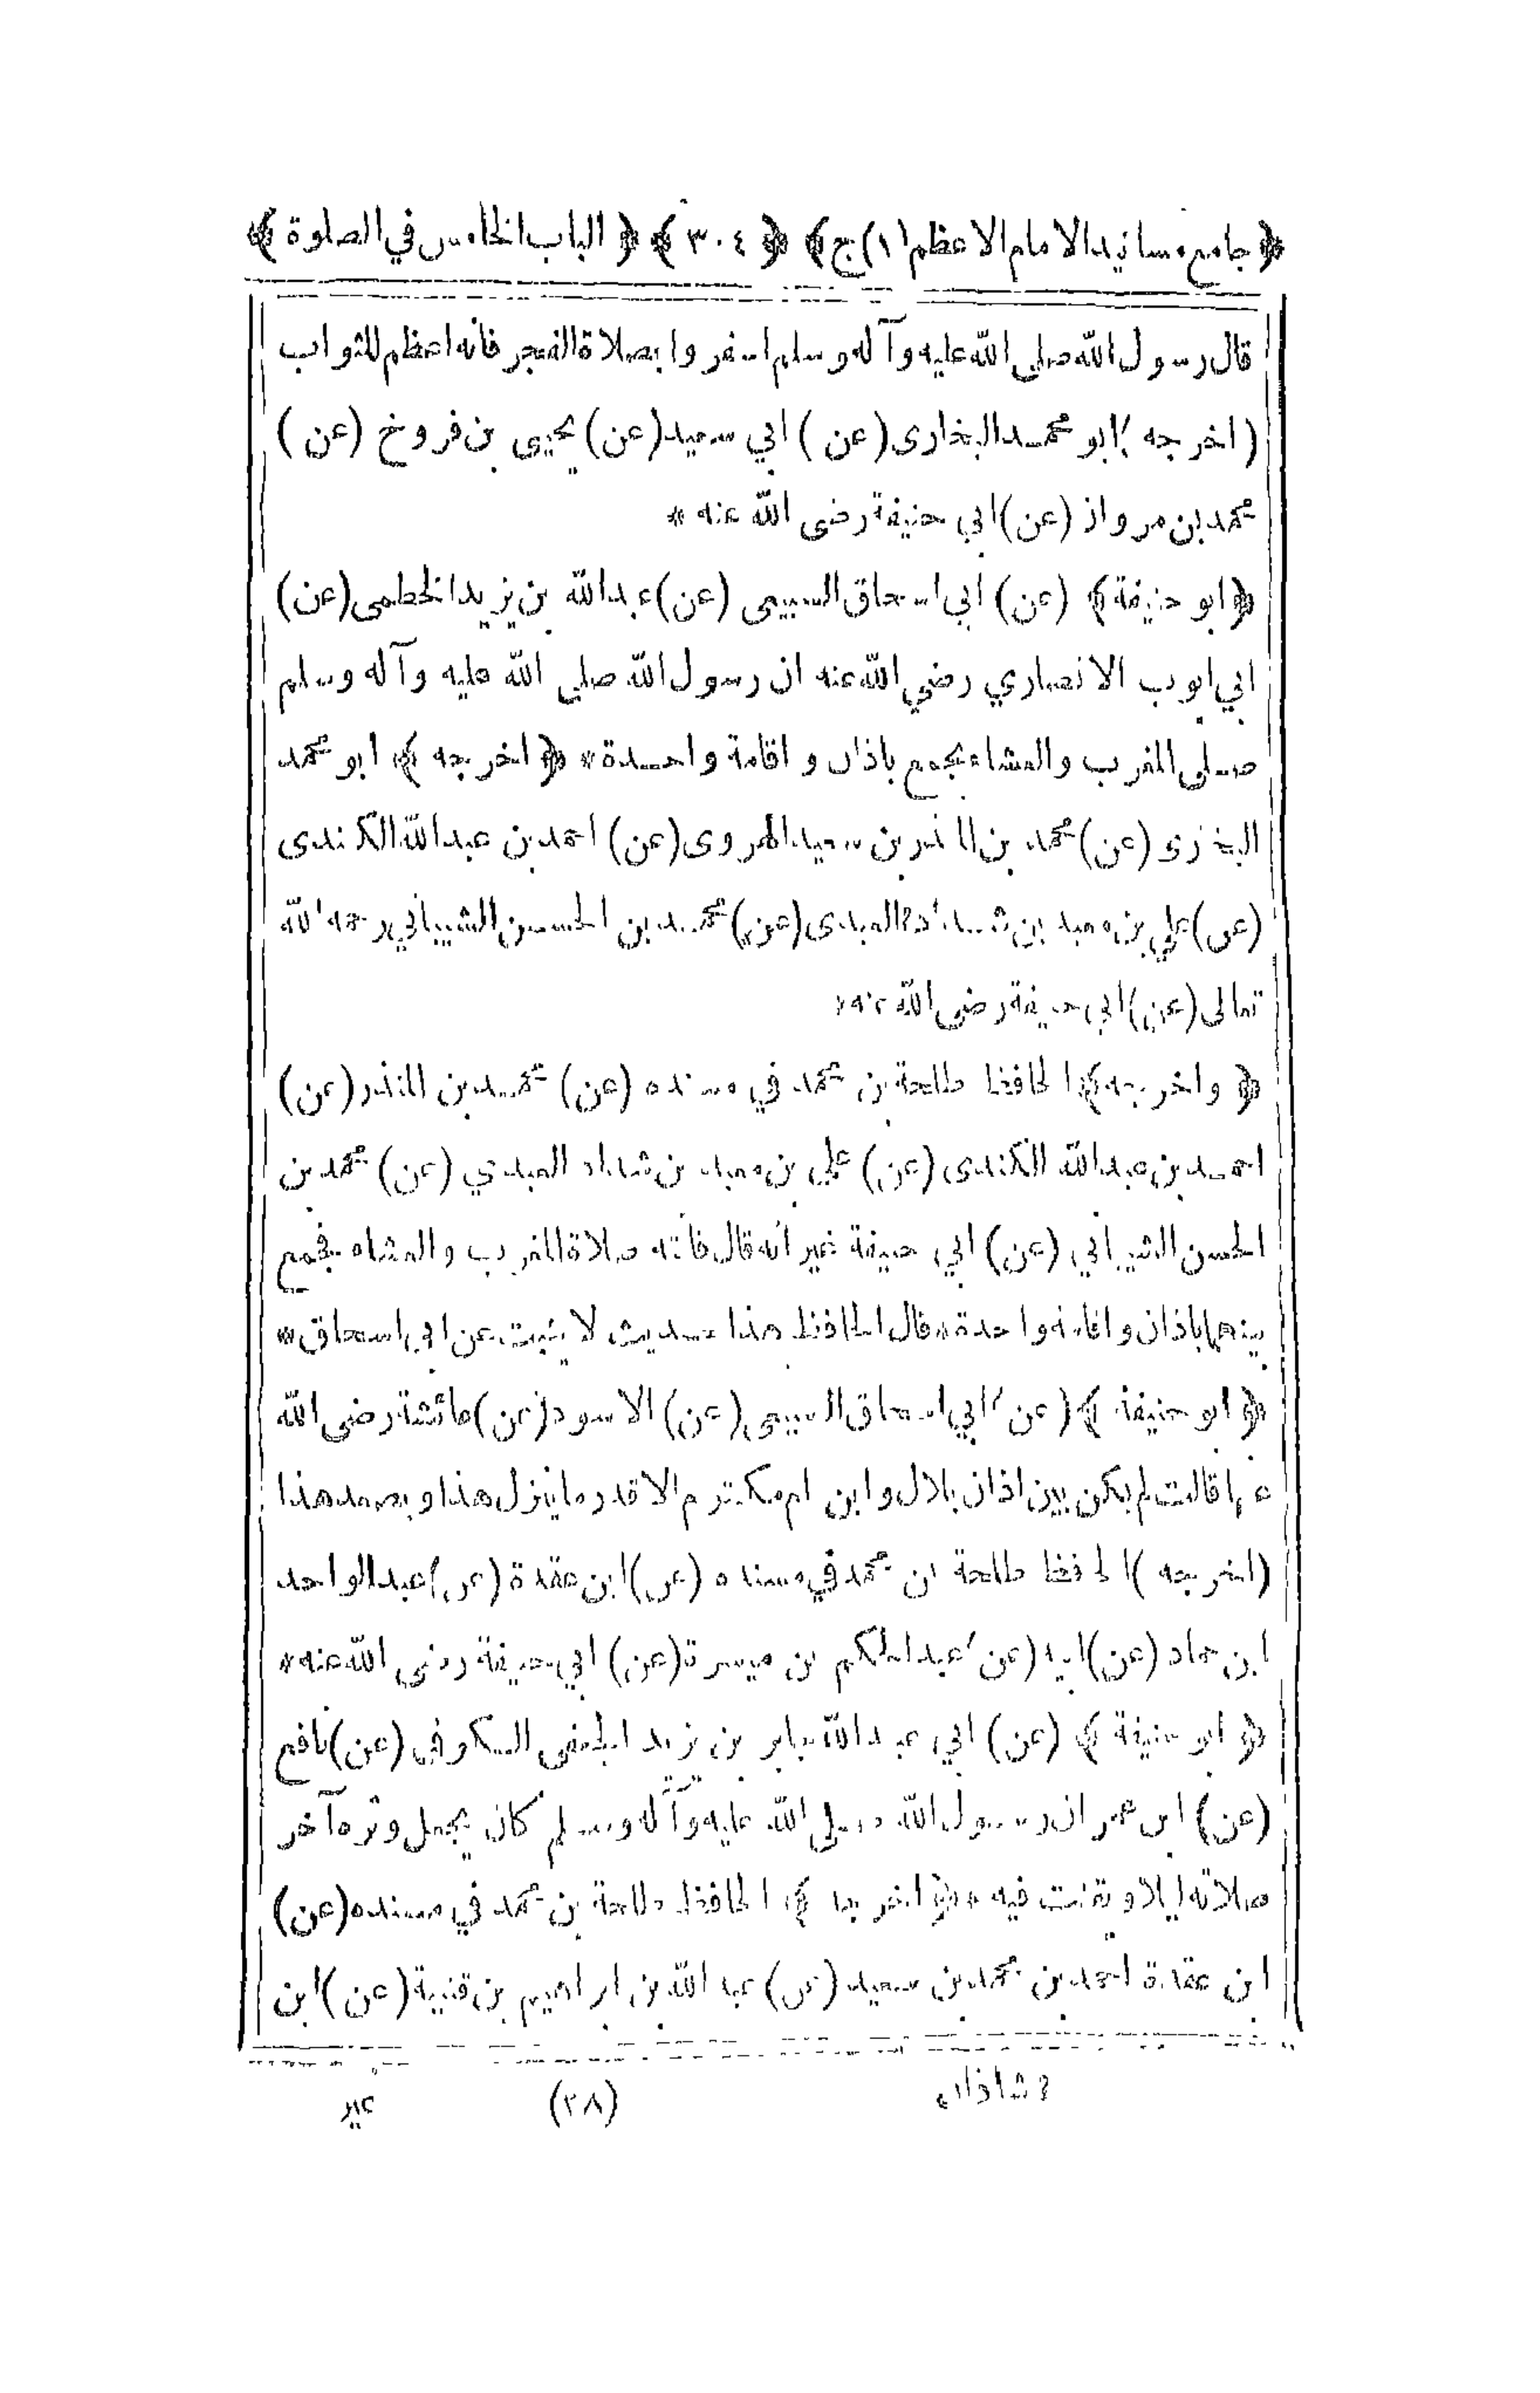 ﴿جامع مسانيد الامام الاعظم (١) ج﴾ ﴿٣٠٤﴾ ﴿الباب الخامس في الصلوة﴾
قال رسول الله صلى الله عليه وآله وسلم اسفروا بصلاة الفجر فانه اعظم للثواب
(اخرجه) ابو محمد البخارى (عن) ابي سعيد (عن) يحيى بن فروخ (عن)
محمد بن مروان (عن) ابي حنيفة رضى الله عنه *
﴿ابو حنيفة﴾ (عن) ابي اسحاق السبيعى (عن) عبد الله بن يزيد الخطمى (عن)
ابي ايوب الانصاري رضي الله عنه ان رسول الله صلى الله عليه وآله وسلم
صلى المغرب والعشاء بجمع باذان و اقامة واحدة * ﴿اخرجه﴾ ابو محمد
البخارى (عن) محمد بن المنذر بن سعيد الهروى (عن) احمد بن عبد الله الكندى
(عن) علي بن معبد بن شداد العبدى (عن) محمد بن الحسن الشيباني رحمه الله
تعالى (عن) ابي حنيفة رضى الله عنه *
﴿واخرجه﴾ الحافظ طلحة بن محمد في مسنده (عن) محمد بن المنذر (عن)
احمد بن عبد الله الكندى (عن) علي بن معبد بن شداد العبدي (عن) محمد بن
الحسن الشيباني (عن) ابي حنيفة غير انه قال فاتته صلاة المغرب والعشاء فجمع
بينهما باذان واقامة واحدة * قال الحافظ هذا حديث لا يثبت عن ابي اسحاق *
﴿ابو حنيفة﴾ (عن) ابي اسحاق السبيعى (عن) الاسود (عن) عائشة رضى الله
عنها قالت لم يكن بين اذان بلال وابن ام مكتوم الا قدر ما ينزل هذا ويصعد هذا
(اخرجه) الحافظ طلحة بن محمد في مسنده (عن) ابن عقدة (عن) عبد الواحد
ابن حماد (عن) ابيه (عن) عبد الحكم بن ميسرة (عن) ابي حنيفة رضى الله عنه *
﴿ابو حنيفة﴾ (عن) ابي عبد الله جابر بن يزيد الجعفى الكوفي (عن) نافع
(عن) ابن عمر ان رسول الله صلى الله عليه وآله وسلم كان يجعل وتره آخر
صلاته ليلا ويقنت فيه * ﴿اخرجه﴾ الحافظ طلحة بن محمد في مسنده (عن)
ابن عقدة احمد بن محمد بن سعيد (عن) عبد الله بن ابراهيم بن قتيبة (عن) ابن
(٣٨)